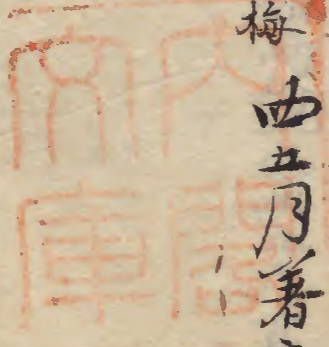 梅
四五月著
内閣
文庫